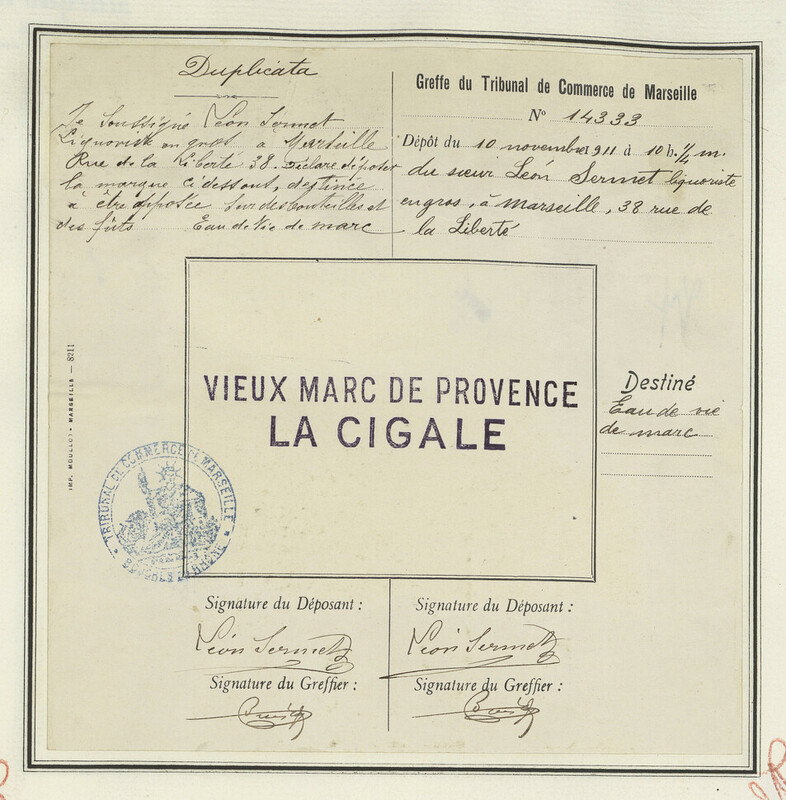 Duplicata
Je Soussigné Léon Sermet
Liquoriste en gros à Marseille
Rue de la Liberté 38. Déclare déposer
la marque ci dessous, destinée
à être apposée sur des bouteilles et
des fûts Eau de Vie de marc
Greffe du Tribunal de Commerce de Marseille
N° 14333
Dépôt du 10 novembre 1911 à 10 h. 1/4 m.
du sieur Léon Sermet liquoriste
en gros, à Marseille, 38 rue de
la Liberté
IMP. MOULLOT • MARSEILLE — 8211
VIEUX MARC DE PROVENCE
LA CIGALE
Destiné
Eau de vie
de marc
TRIBUNAL DE COMMERCE DE MARSEILLE
BOUCHES DU RHÔNE
Signature du Déposant :
Léon Sermet
Signature du Greffier :
Signature du Déposant :
Léon Sermet
Signature du Greffier :